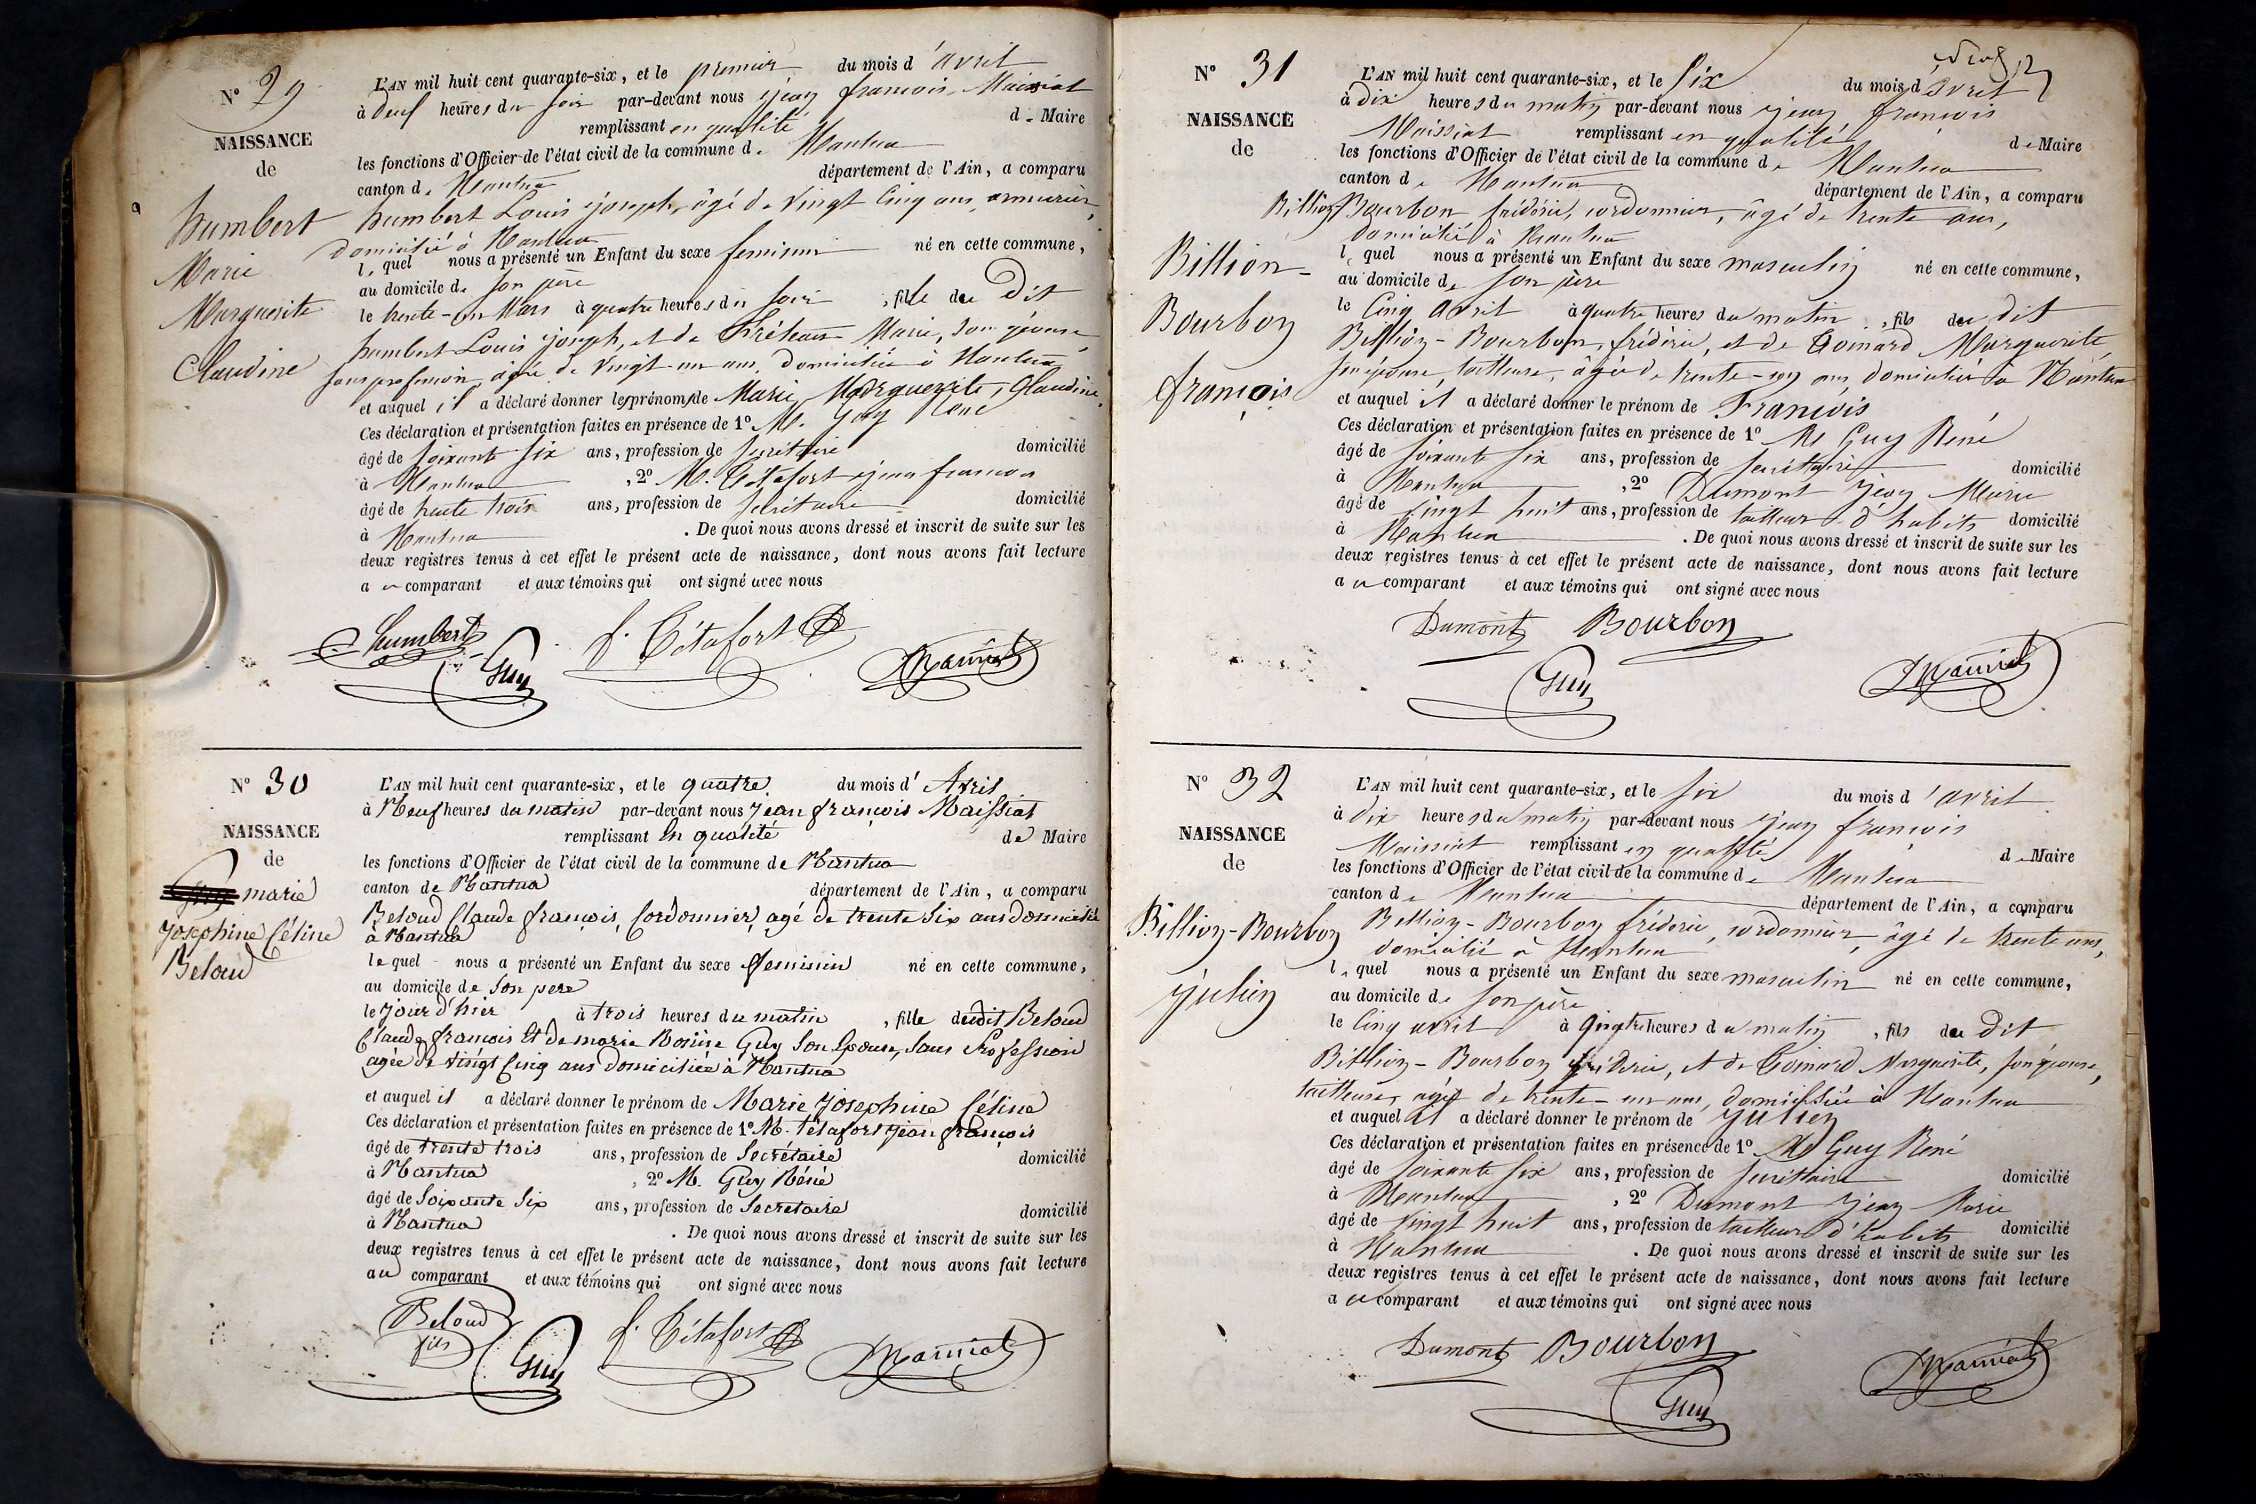 N° 29
NAISSANCE
de
humbert
Marie
Marguerite
Claudine
L'AN mil huit cent quarante-six, et le premier du mois d'avril
à deux heures du soir par-devant nous jean francois Maissiat
remplissant en qualité de Maire
les fonctions d'Officier de l'état civil de la commune de Nantua
canton de Nantua département de l'Ain, a comparu
humbert Louis joseph, âgé de vingt cinq ans, armurier,
domicilié à Nantua
lequel nous a présenté un Enfant du sexe feminin né en cette commune,
au domicile de son père
le trente-un Mars à quatre heures du soir, fille du dit
humbert Louis joseph, et de Marie, son épouse
sans profession, agée de vingt un ans, domiciliée à Nantua
et auquel il a déclaré donner les prénoms de Marie, Marguerite, Claudine.
Ces déclaration et présentation faites en présence de 1° M. Guy René
âgé de soixante six ans, profession de secrétaire domicilié
à Nantua, 2° M. Tétafort jean francois
âgé de trente trois ans, profession de secrétaire domicilié
à Nantua. De quoi nous avons dressé et inscrit de suite sur les
deux registres tenus à cet effet le présent acte de naissance, dont nous avons fait lecture
au comparant et aux témoins qui ont signé avec nous
humbert Guy f. Tétafort Maissiat
N° 30
NAISSANCE
de
marie
Josephine Céline
Beloud
L'AN mil huit cent quarante-six, et le quatre du mois d'Avril
à Neuf heures du matin par-devant nous Jean françois Maissiat
remplissant en qualité de Maire
les fonctions d'Officier de l'état civil de la commune de Nantua
canton de Nantua département de l'Ain, a comparu
Beloud Claude françois, Cordonnier, agé de trente Six ans domicilié
à Nantua
lequel nous a présenté un Enfant du sexe feminin né en cette commune,
au domicile de Son pere
le jour d'hier à trois heures du matin, fille dudit Beloud
Claude francois Et de marie Rosine Guy Son Epouse, Sans Profession
agée de vingt Cinq ans domiciliée à Nantua
et auquel il a déclaré donner le prénom de Marie Josephine Céline
Ces déclaration et présentation faites en présence de 1° M. Tétafort Jean françois
âgé de trente trois ans, profession de Secrétaire domicilié
à Nantua, 2° M. Guy Réné
âgé de Soixante Six ans, profession de Secretaire domicilié
à Nantua. De quoi nous avons dressé et inscrit de suite sur les
deux registres tenus à cet effet le présent acte de naissance, dont nous avons fait lecture
au comparant et aux témoins qui ont signé avec nous
Beloud fils Guy f. Tétafort Maissiat
N° 31
NAISSANCE
de
Billion-
Bourbon
françois
L'AN mil huit cent quarante-six, et le six du mois d'avril
à dix heures du matin par-devant nous jean françois
Maissiat remplissant en qualité de Maire
les fonctions d'Officier de l'état civil de la commune de Nantua
canton de Nantua département de l'Ain, a comparu
Billion Bourbon frédéric, cordonnier, âgé de trente ans,
domicilié à Nantua
lequel nous a présenté un Enfant du sexe masculin né en cette commune,
au domicile de son père
le Cinq avril à quatre heures du matin, fils du dit
Billion-Bourbon, frédéric, et de Goinard Marguerite
son épouse, tailleuse, âgée de trente-un ans, domiciliée à Nantua
et auquel il a déclaré donner le prénom de François
Ces déclaration et présentation faites en présence de 1° M. Guy René
âgé de soixante six ans, profession de secrétaire domicilié
à Nantua, 2° Dumont jean Marie
âgé de vingt huit ans, profession de tailleur d'habits domicilié
à Nantua. De quoi nous avons dressé et inscrit de suite sur les
deux registres tenus à cet effet le présent acte de naissance, dont nous avons fait lecture
au comparant et aux témoins qui ont signé avec nous
Dumont Bourbon
Guy Maissiat
N° 32
NAISSANCE
de
Billion-Bourbon
julien
L'AN mil huit cent quarante-six, et le six du mois d'avril
à dix heures du matin par-devant nous jean françois
Maissiat remplissant en qualité de Maire
les fonctions d'Officier de l'état civil de la commune de Nantua
canton de Nantua département de l'Ain, a comparu
Billion-Bourbon frédéric, cordonnier, âgé de trente ans,
domicilié à Nantua
lequel nous a présenté un Enfant du sexe masculin né en cette commune,
au domicile de son père
le Cinq avril à quatre heures du matin, fils du dit
Billion-Bourbon frédéric, et de Goinard Marguerite, son épouse,
tailleuse, agée de trente-un ans, domiciliée à Nantua
et auquel il a déclaré donner le prénom de julien
Ces déclaration et présentation faites en présence de 1° M. Guy René
âgé de soixante six ans, profession de secrétaire domicilié
à Nantua, 2° Dumont jean Marie
âgé de vingt huit ans, profession de tailleur d'habits domicilié
à Nantua. De quoi nous avons dressé et inscrit de suite sur les
deux registres tenus à cet effet le présent acte de naissance, dont nous avons fait lecture
au comparant et aux témoins qui ont signé avec nous
Dumont Bourbon
Guy Maissiat